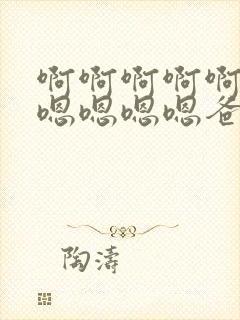 啊啊啊啊啊
嗯嗯嗯嗯爸
陶濤